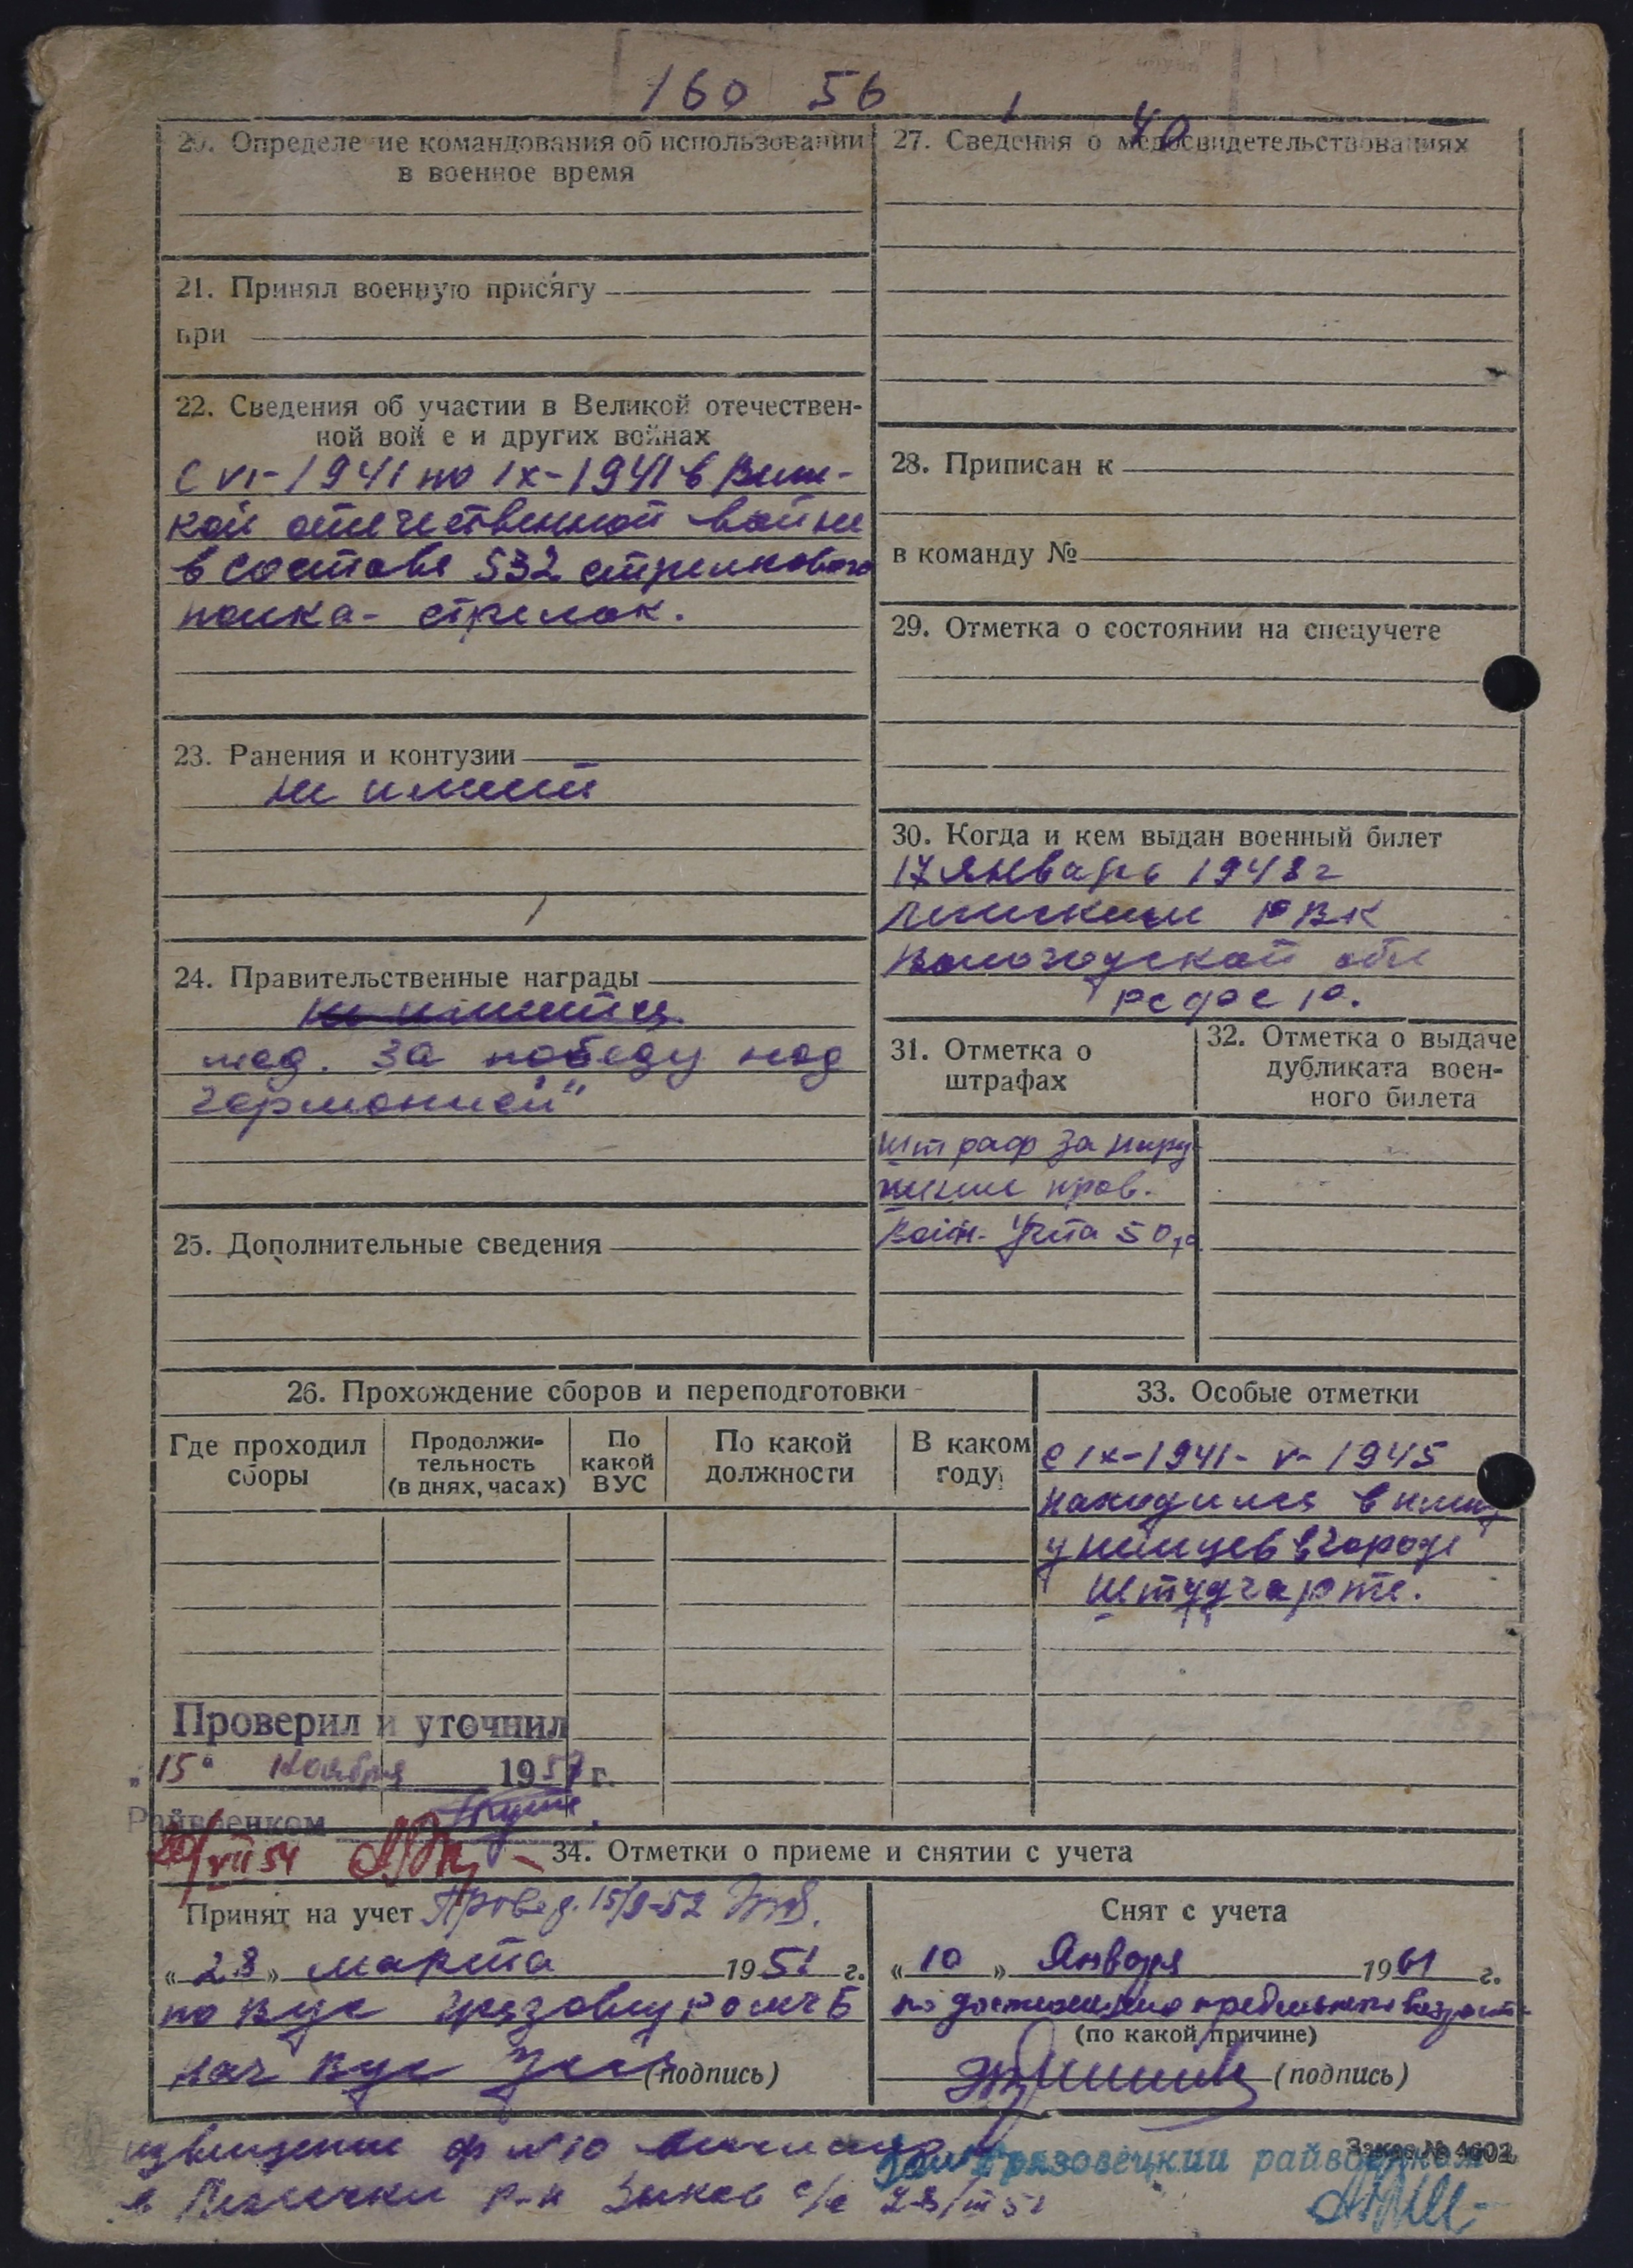 160 56
1 40
20. Определение командования об использовании
в военное время
21. Принял военную присягу
при
22. Сведения об участии в Великой отечествен-
ной войне и других войнах
С VI-1941 по IX-1941 в Вели-
кой отечественной войне
в составе 532 стрелкового
полка - стрелок.
23. Ранения и контузии
не имеет
24. Правительственные награды
не имеется
мед. За победу над
германией"
25. Дополнительные сведения
27. Сведения о медосвидетельствованиях
28. Приписан к
в команду №
29. Отметка о состоянии на спецучете
30. Когда и кем выдан военный билет
17 январь 1948 г
РВК
Вологодской обл
РСФСР.
31. Отметка о
штрафах
штраф за нару-
шение прав.
воин. учета 50 р
32. Отметка о выдаче
дубликата воен-
ного билета
26. Прохождение сборов и переподготовки
Где проходил
сборы
Продолжи-
тельность
(в днях, часах)
По
какой
ВУС
По какой
должности
В каком
году
33. Особые отметки
с IX-1941 - V-1945
находился в плену
у немцев в городе
Штудгарте.
Проверил и уточнил
"15" ноября 1957 г.
Райвоенком
VII 54
34. Отметки о приеме и снятии с учета
Принят на учет Провед. 15/9-52
«28» марта 1951 г.
по ВУС
нач ВУС (подпись)
Снят с учета
«10» Января 1961 г.
по достижению предельного возраст
(по какой причине)
(подпись)
извещение ф № 10
Заказ № 4602
Грязовецкий райвоенком
р-н с/с 28/III 51